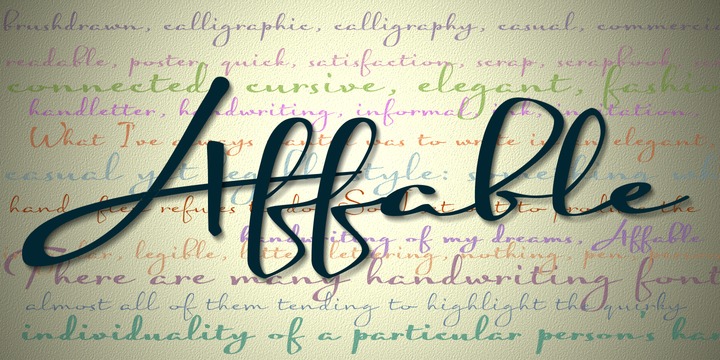 brushdrawn, calligraphic, calligraphy, casual, commercia
readable, poster, quick, satisfaction, scrap, scrapbook,
connected, cursive, elegant, fashio
handletter, handwriting, informal, ink, invitation,
What I've always wanted was to write in an elegant,
casual yet legible style: something wh
hand often refuses to do. So I set out to produce the
handwriting of my dreams, Affable
legible, letter, lettering, nothing, pen,
There are many handwriting font
almost all of them tending to highlight the quirky
individuality of a particular person's ha
Affable